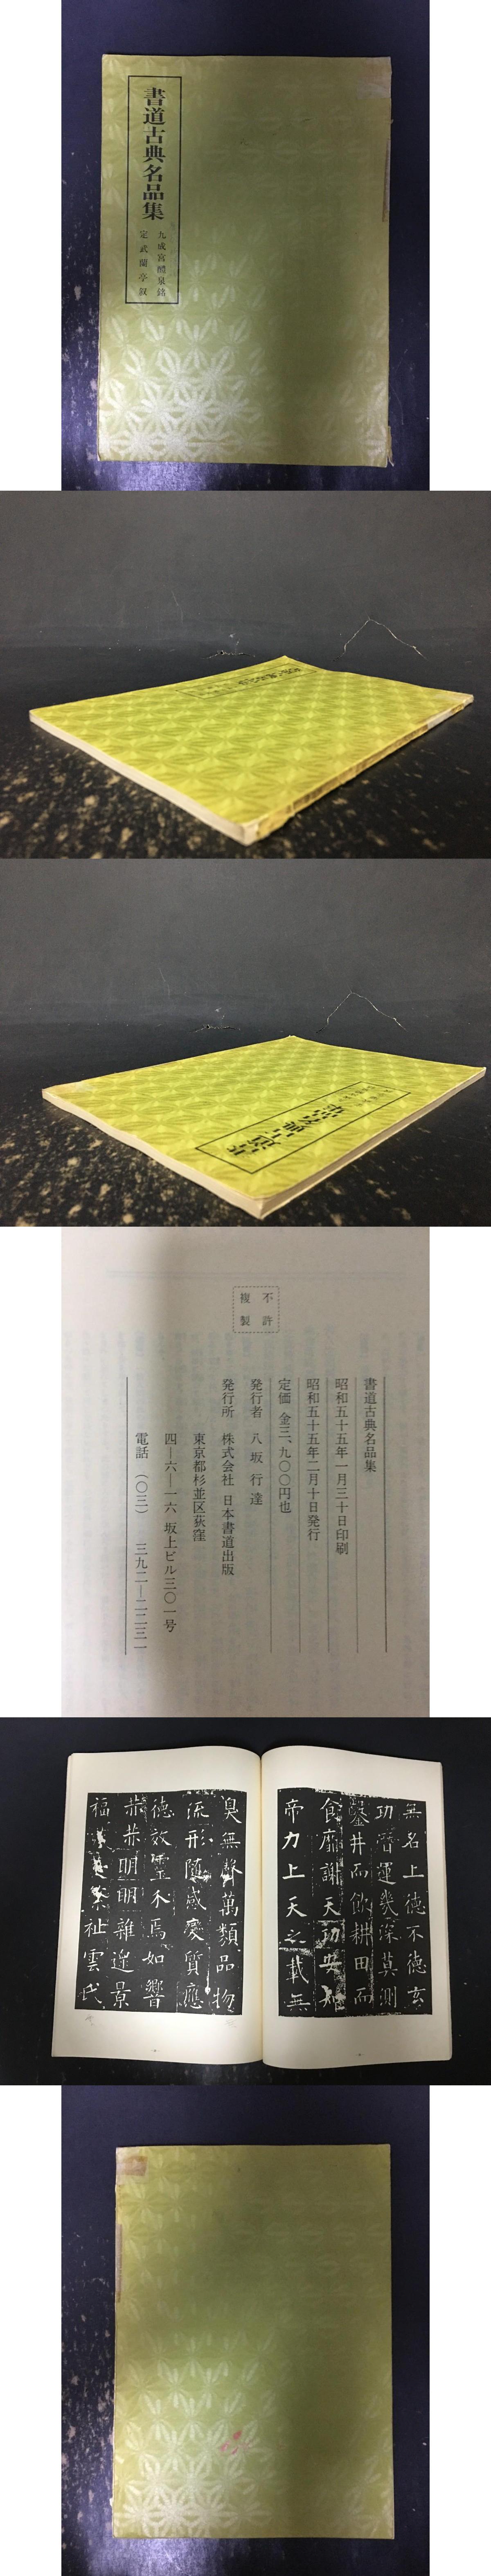 書道古典名品集
九成宮醴泉銘
定武蘭亭叙
不許
複製
書道古典名品集
昭和五十五年一月三十日印刷
昭和五十五年二月十日発行
定価 金三、九〇〇円也
発行者 八坂行達
発行所 株式会社 日本書道出版
東京都杉並区荻窪
四―六―一六 坂上ビル三〇一号
電話 (〇三) 三九二―二二三一
無名上德不德玄
功潛運幾深莫測
鑿井而飲耕田而
食靡謝天功安知
帝力上天之載無
臭無聲萬類品物
流形隨感變質應
德效靈不焉如響
赫赫明明雜遝景
福繁祉雲氏